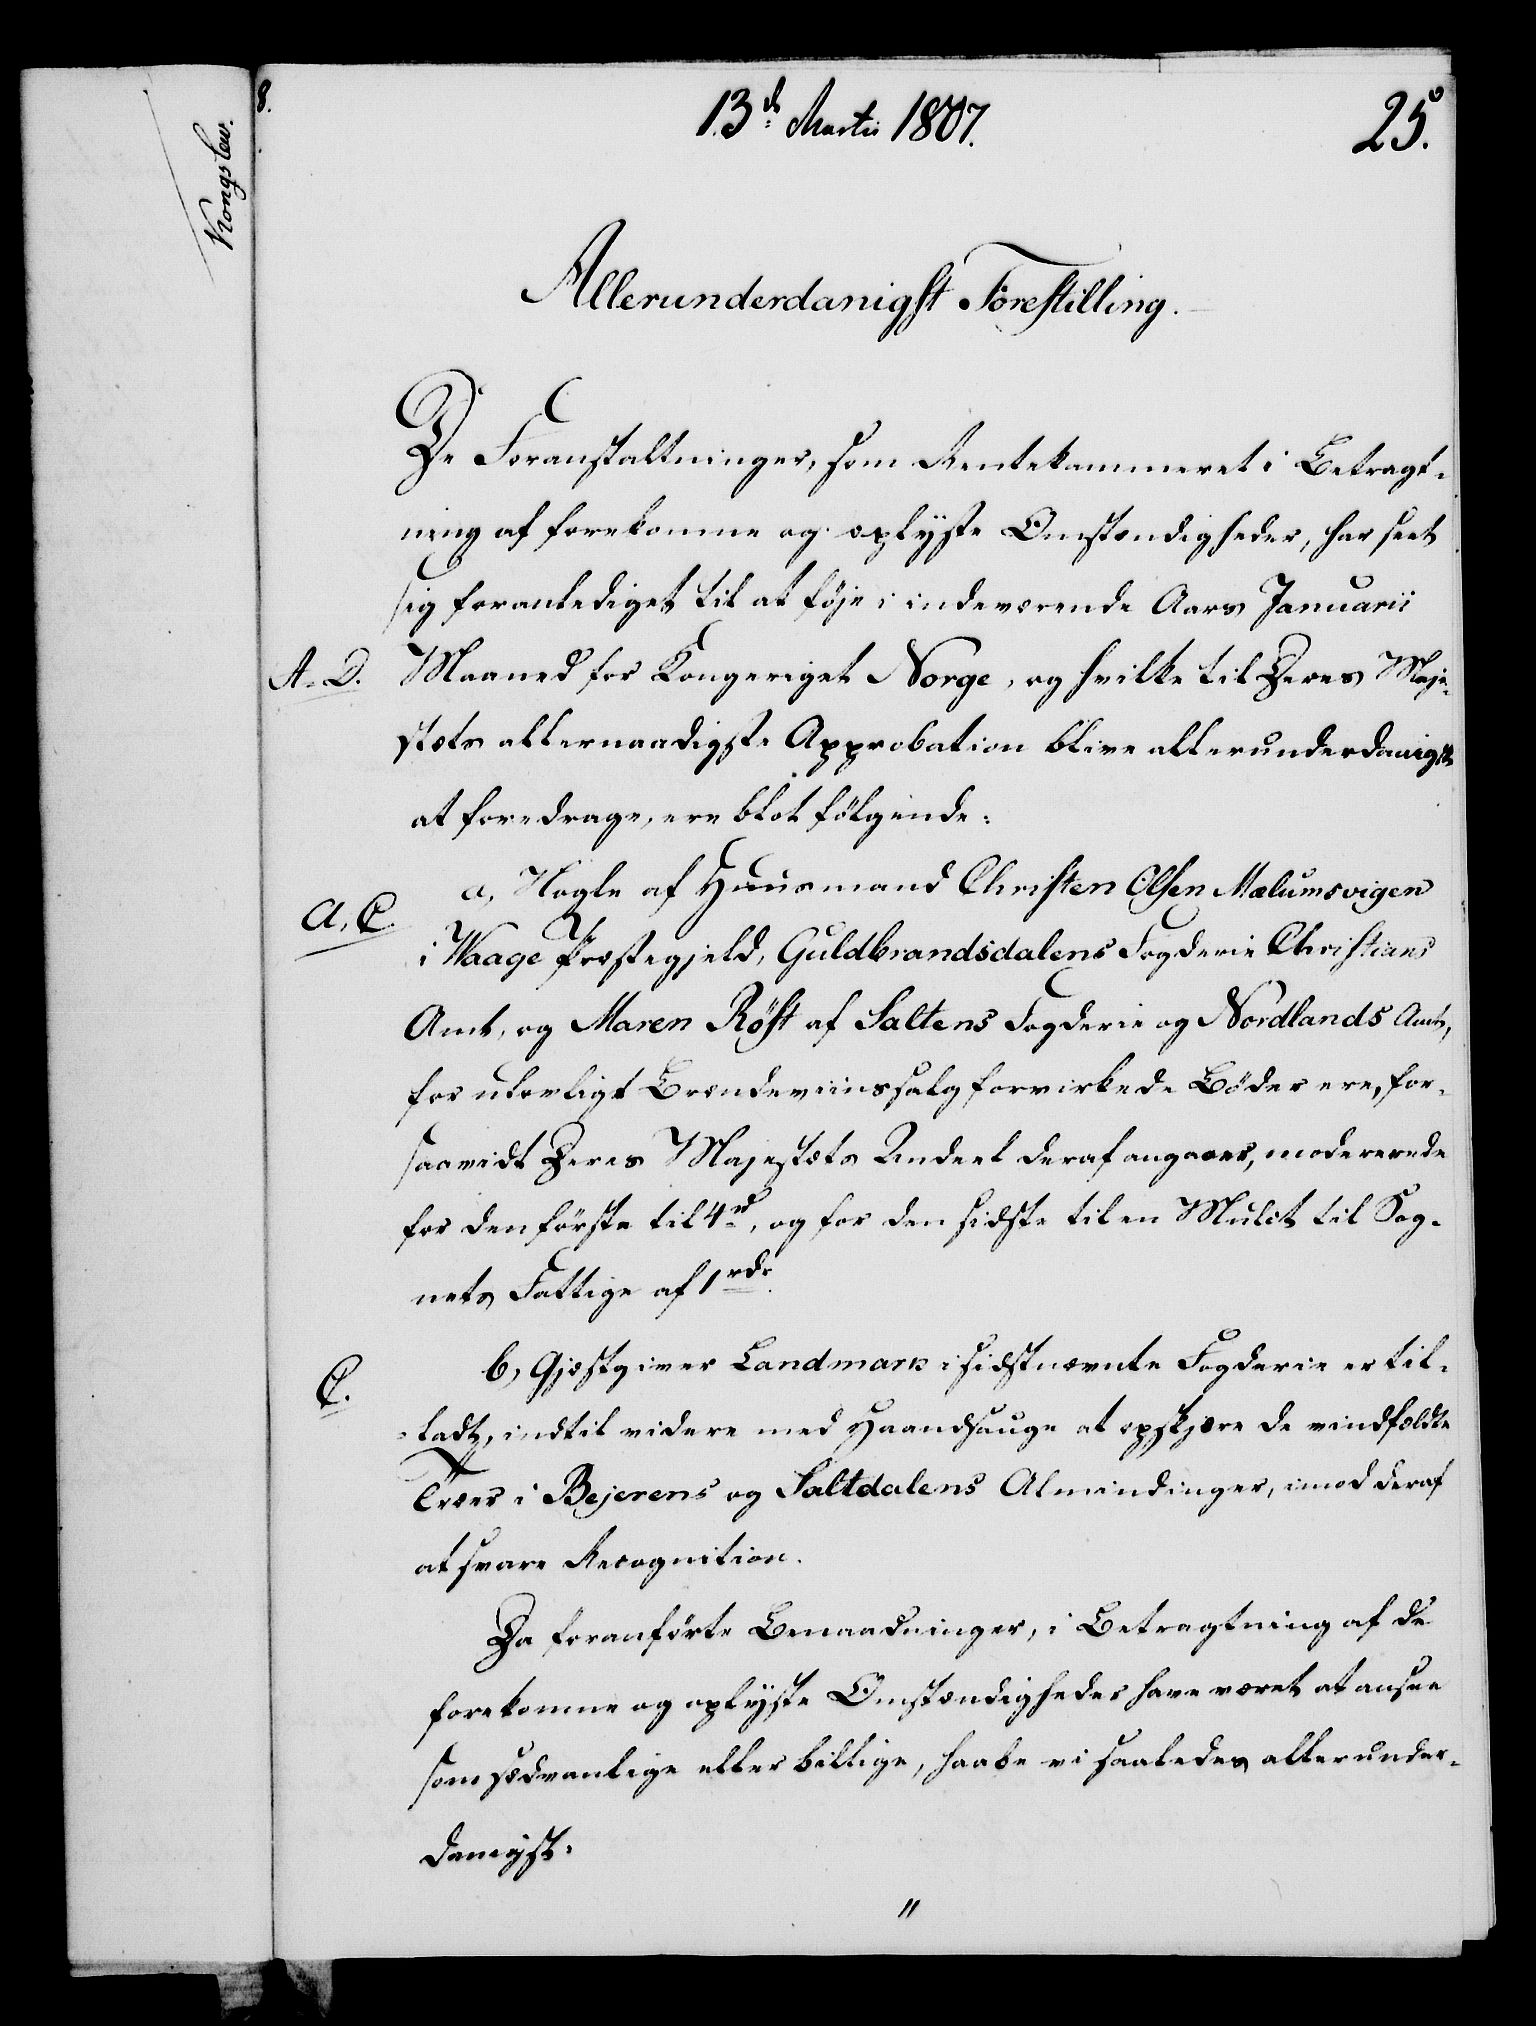 Kongslew.
8.
13de Martii 1807.
25.
Allerunderdanigst Forestilling.
De Foranstaltninger, som Rentekammeret i Betragt-
ning af forekomne og oplyste Omstændigheder, har seet
sig foranlediget til at föje i indeværende Aars Januarii
A-D.
Maaned for Kongeriget Norge, og hvilke til Deres Maje-
stæts allernaadigste Approbation blive allerunderdanigst
at foredrage, ere blot fölgende:
A, C.
a, Nogle af Huusmand Christen Olsen Mælumsvigen
i Waage Præstegjeld, Guldbrandsdalens Fogderie Christians
Amt, og Maren Röst af Saltens Fogderie og Nordlands Amt,
for ulovligt Brændeviinssalg forvirkede Böder ere, for-
saavidt Deres Majestæts Andeel deraf angaaer, modererede
for den förste til 4 rd, og for den sidste til en Mulct til Sog-
nets Fattige af 1 rdr.
C.
b, Gjæstgiver Landmark i sidstnævnte Fogderie er til-
ladt, indtil videre med Haandsauge at opskjære de vindfældte
Træer i Bejerens og Saltdalens Almindinger, imod deraf
at svare Recognition.
Da foranförte Benaadninger, i Betragtning af de
forekomne og oplyste Omstændigheder have været at ansee
som sædvanlige eller billige, haabe vi saaledes allerunder-
danigst:
"